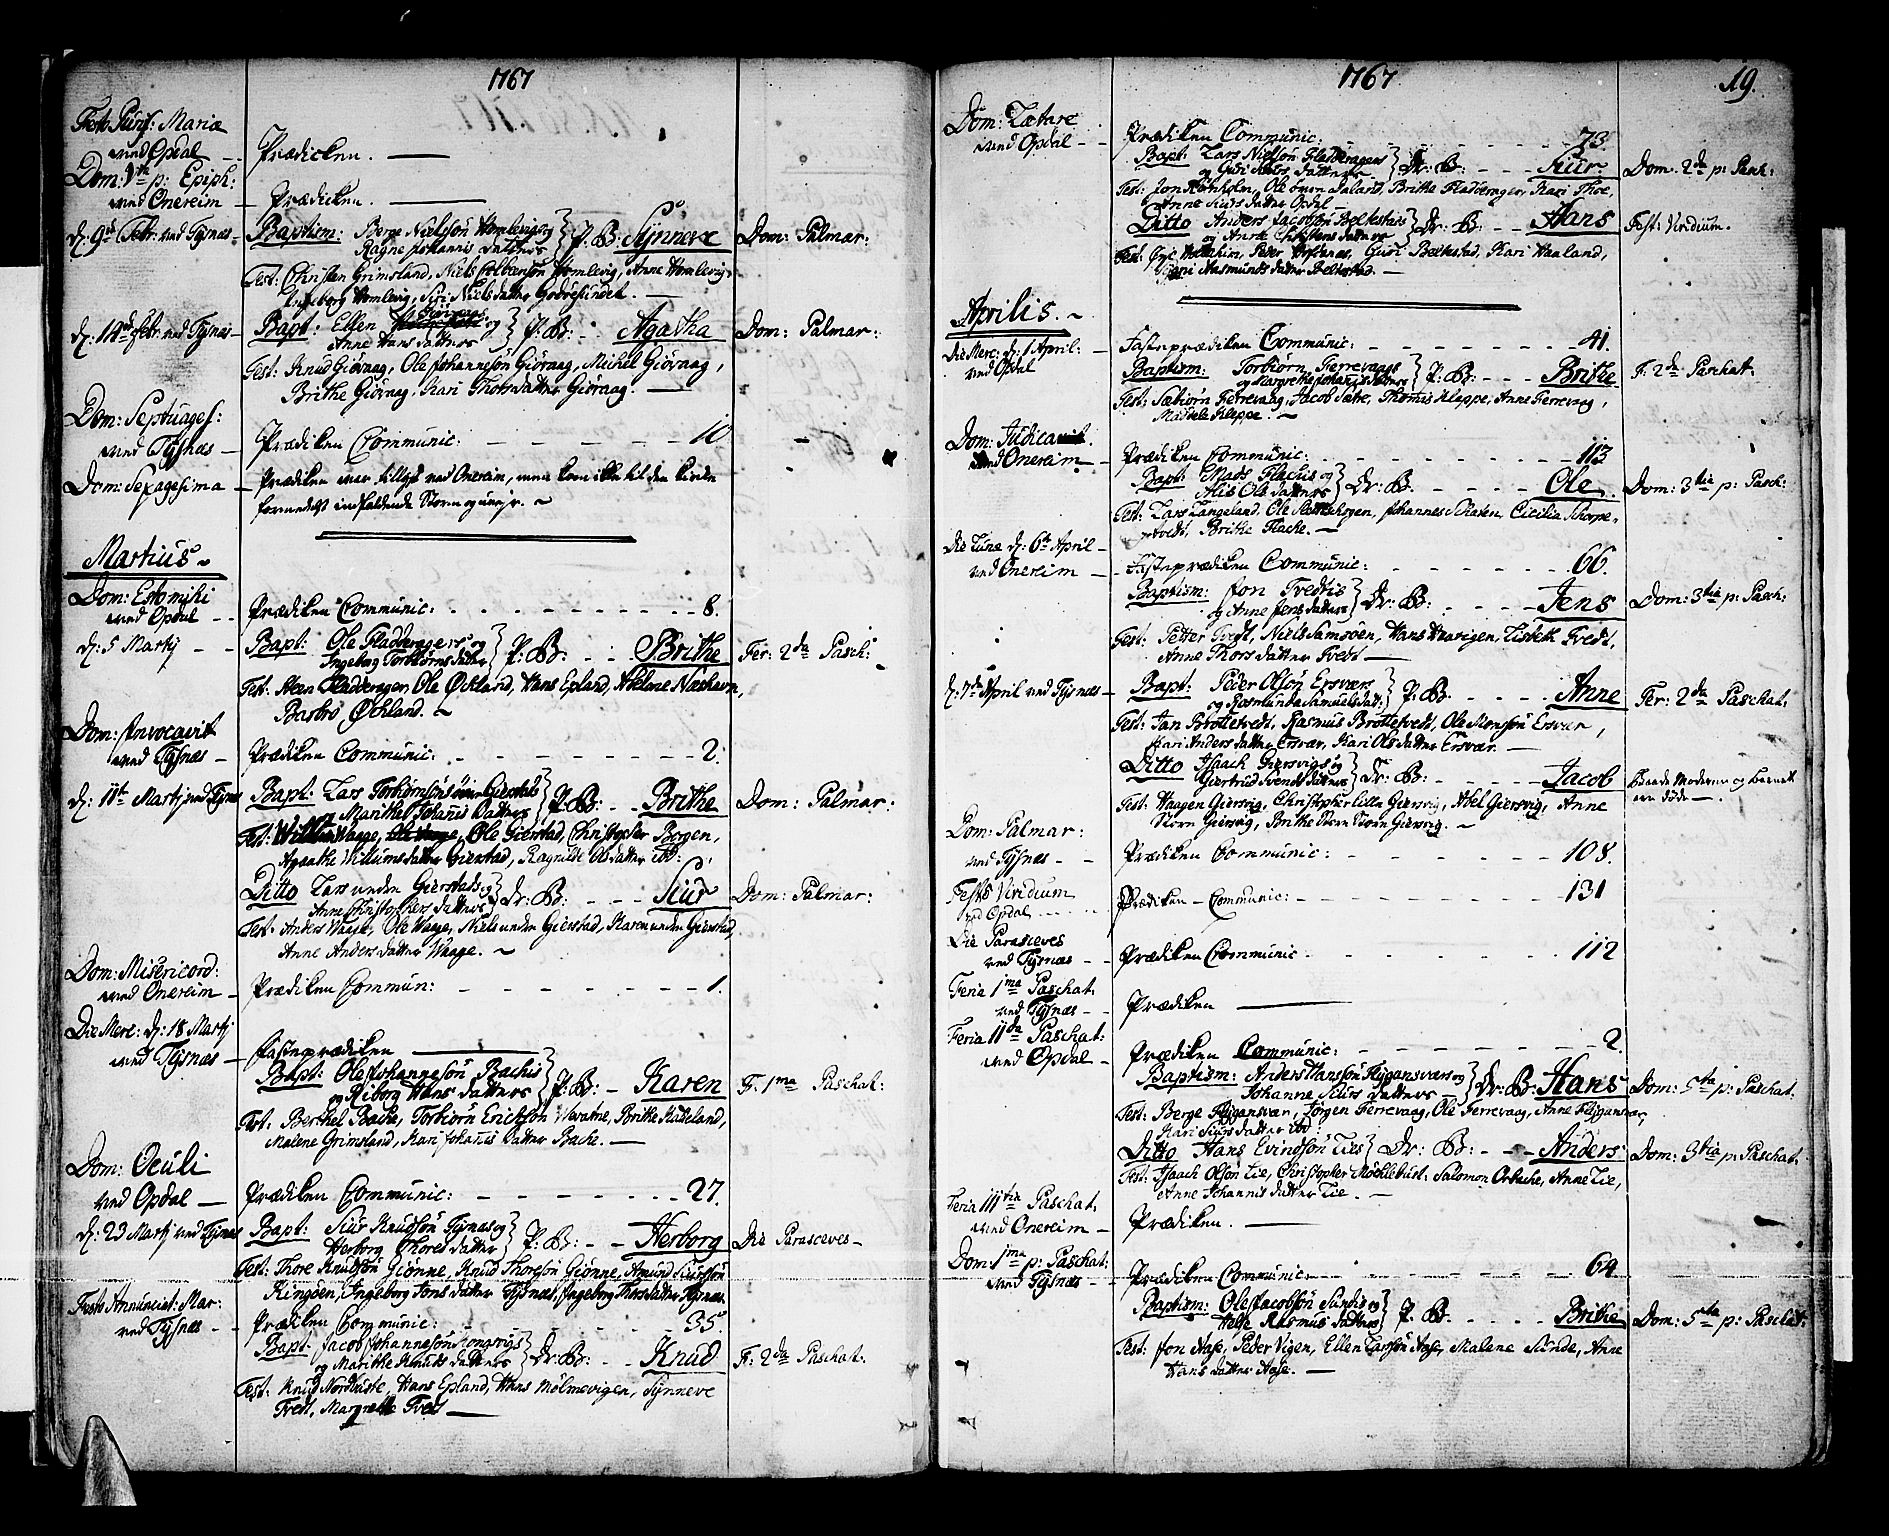 1767
Festo Purif: Mariæ
ved Opdal - - Prædicken.
Dom: Vta p: Epiph:
ved Onereim - Prædicken.
d: 9de Febr: ved Tysnæs - Baptism: Børge Nielssøn Hemlevigs og Ragne Johannis datters } P: B: Synneve Dom: Palmar:
Test: Christen Grimsland, Niels Colbeensøn Hemlevig, Anne Hemlevig,
Ingeborg Hemlevig, Siri Niels datter Godøesundet.
d: 14de Febr: ved Tysnæs - Bapt: Ellen Giøvaags og
Anne Hans datters } P: B: Agatha Dom: Palmar:
Test: Knud Giøvaag, Ole Johannessøn Giøvaag, Michel Giøvaag,
Brithe Giøvaag, Kari Thors datter Giøvaag.
Dom: Septuages:
ved Tysnæs - Prædiken Communic: - - - 10.
Dom: Sexagesima - Prædiken var tillyst ved Onereim, men kom ikke til den kirke
formedelst indfaldende Storm og uvejr.
Martius
Dom: Estomihi
ved Opdal - - Prædiken Communic: - - - 8.
d: 5 Martij - - Bapt: Ole Fladderagers og
Ingeborg Torbiørns datter } P: B: Brithe Fer: 2da Pasch:
Test: Steen Fladderager, Ole Øckland, Hans Epland, Abelone Næshavn,
Barbro Øckland.
Dom: Invocavit
ved Tysnæs - Prædiken Communic: - - - 2.
d: 11te Martij ved Tysnæs Bapt: Lars Torbiørnsøns Gierstad
Marithe Johanis Datters } P: B: - - Brithe Dom: Palmar:
Test: Willum Waage, Ole Gierstad, Christopher Borgen,
Agaathe Willumsdatter Gierstad, Ragnilde Ols datter ibd:
Ditto Lars unden Gierstads og
Anne Christophers datters } Dr: B: - - - Siur Dom: Palmar:
Test: Anders Waage, Ole Waage, Niels unden Gierstad, Karen unden Gierstad,
Anne Anders datter Waage.
Dom: Misericord:
ved Onereim - Prædiken Commun: - - - 1.
Die Merc: d: 18 Martj
ved Tysnæs - Fasteprædiken
Bapt: Ole Johannessøn Bachis
og Riborg Hans datters } P: B: - Karen F. 1ma Paschat:
Test: Berthel Bache, Torbiørn Erichsøn Waratne, Brithe Hudeland,
Malene Grimsland, Kari Johanis datter Bache.
Dom: Oculi
ved Opdal - Prædiken Communic: - - - 27.
d: 23 Martj ved Tysnæs Bapt: Siur Knudsøn Tysnæs og
Herborg Thores datter } P: B: - - Herborg Die Parasceves -
Test: Thore Knudsøn Giønne, Knud Thoresøn Giønne, Amund Siursøn
Ringøen, Ingeborg Jons datter Tysnæs, Ingeborg Thors datter Tysnæs.
Festo Annunciat: Mar:
ved Tysnæs - - Prædiken Communic: - - - 35.
Bapt: Jacob Johannesøn Songevigs
og Marithe Knuds datters } Dr: B: - - Knud F: 2da Paschat:
Test: Knud Nordviste, Hans Epland, Hans Mølmevigen, Synneve
Tvedt, Margrethe Tvedt
1767 19.
Dom: Lætare
ved Opdal - - Prædiken Communic: - - - 73
Bapt: Lars Nielsøn Fladderagers
og Guri Ols datters } Dr: B: - - Siur. Dom: 2da p: Pasch:
Test: Jon Hindchen, Ole Øvre Saland, Brithe Fladderager, Kari Thoe,
Anne Siurs datter Opdal
Ditto Anders Jacobsøn Beltestads
og Anne Christens datters } Dr: B: - - Hans Fest: Viridium.
Test: Peder Hofdanes, Guri Beltestad, Kari Haaland,
Guri Aasmunds datter Beltestad.
Aprilis.
Die Merc: d: 1 April:
ved Opdal - Fasteprædiken Communic: - - - 41.
Baptism: Torbiørn Ferrevaags
og Margrethe Johanis datters } P: B: - - - Brithe F: 2da Paschat:
Test: Sæbiørn Ferrevaag, Jacob Sætre, Thomas Kleppe, Anne Ferrevaag,
Madtele Kleppe.
Dom: Judica
ved Onereim - Prædiken Communic: - - - 113
Bapt: Mads Flachis og
Alis Ols datters } Dr: B. - - - Ole. Dom: 3tia p: Pasch:
Test: Lars Langeland, Ole Slottschogen, Johannes Skaten, Cicilia Schorpe-
tvedt, Brithe Flacke.
Die Lune d: 6te April -
ved Onereim - - Fasteprædiken Communic: - - - 66.
Baptism: Jon Tvedtis
og Anne Jens datters } Dr: B: - - - Jens Dom: 3tia p: Pasch:
Test: Petter Tvedt, Niels Samsøen, Hans Haavigen, Lisbeth Tvedt,
Anne Thors datter Tvedt
d: 7de April ved Tysnæs - Bapt: Peder Olsøn Ersvær
og Rosmunda Samuels dat: } P: B - - - Anne Fer: 2da Paschat.
Test: Jan Brottetvedt, Rasmus Brottetvedt, Ole Monsøn Ersvær,
Kari Anders datter Ersvær, Kari Ols datter Ersvær.
Ditto Isaach Giersvigs og
Giertrud Svends datters } Dr: B: - - - Jacob Baade Moderen og Barnet
ere døde.
Test: Haagen Giersvig, Christopher Lille Giersvig, Abel Giersvig, Anne
Storre Giersvig, Brithe Storre Giersvig.
Dom: Palmar:
ved Tysnæs - - Prædiken Communic: - - - 108.
Festo Viridium
ved Opdal - - - Prædiken - Communic: - - - 131
Die Parasceves
ved Tysnæs - - Prædiken Communic - - - 112
Feria 1ma Paschat.
ved Tysnæs - - Prædiken
Feria IIda Paschat:
ved Opdal - Prædiken Communic: - - - 2.
Baptism: Anders Hanssøn Flygansvær og
Johanne Siurs datters } Dr: B: Hans Dom: 5ta p: Paschat
Test: Berge Flygansvær, Jørgen Ferrevaag, Ole Ferrevaag, Anne Flygansvær,
Kari Siurs datter ibd:
Ditto Hans Evindsøn Ties } Dr: B: - - Anders Dom: 3tia p: Paschat.
Test: Isaach Olsøn Tie, Christopher Mochlebust, Salomon Orbeche, Anne Tie,
Anne Johannis datter Tie.
Feria IIItia Paschat.
ved Onereim - Prædiken.
Dom 1ma p: Paschat:
ved Tysnæs - - Prædiken Communic. - - - 64
Baptism: Ole Jacobsøn Sundis og
Rasmus datters } P: B. - - - Brithe Dom: 5ta p: Paschat:
Test: Jon Aase, Peder Vigen, Ellen Larssøn Aase, Malene Sunde, Anne
Hans datter Aase.